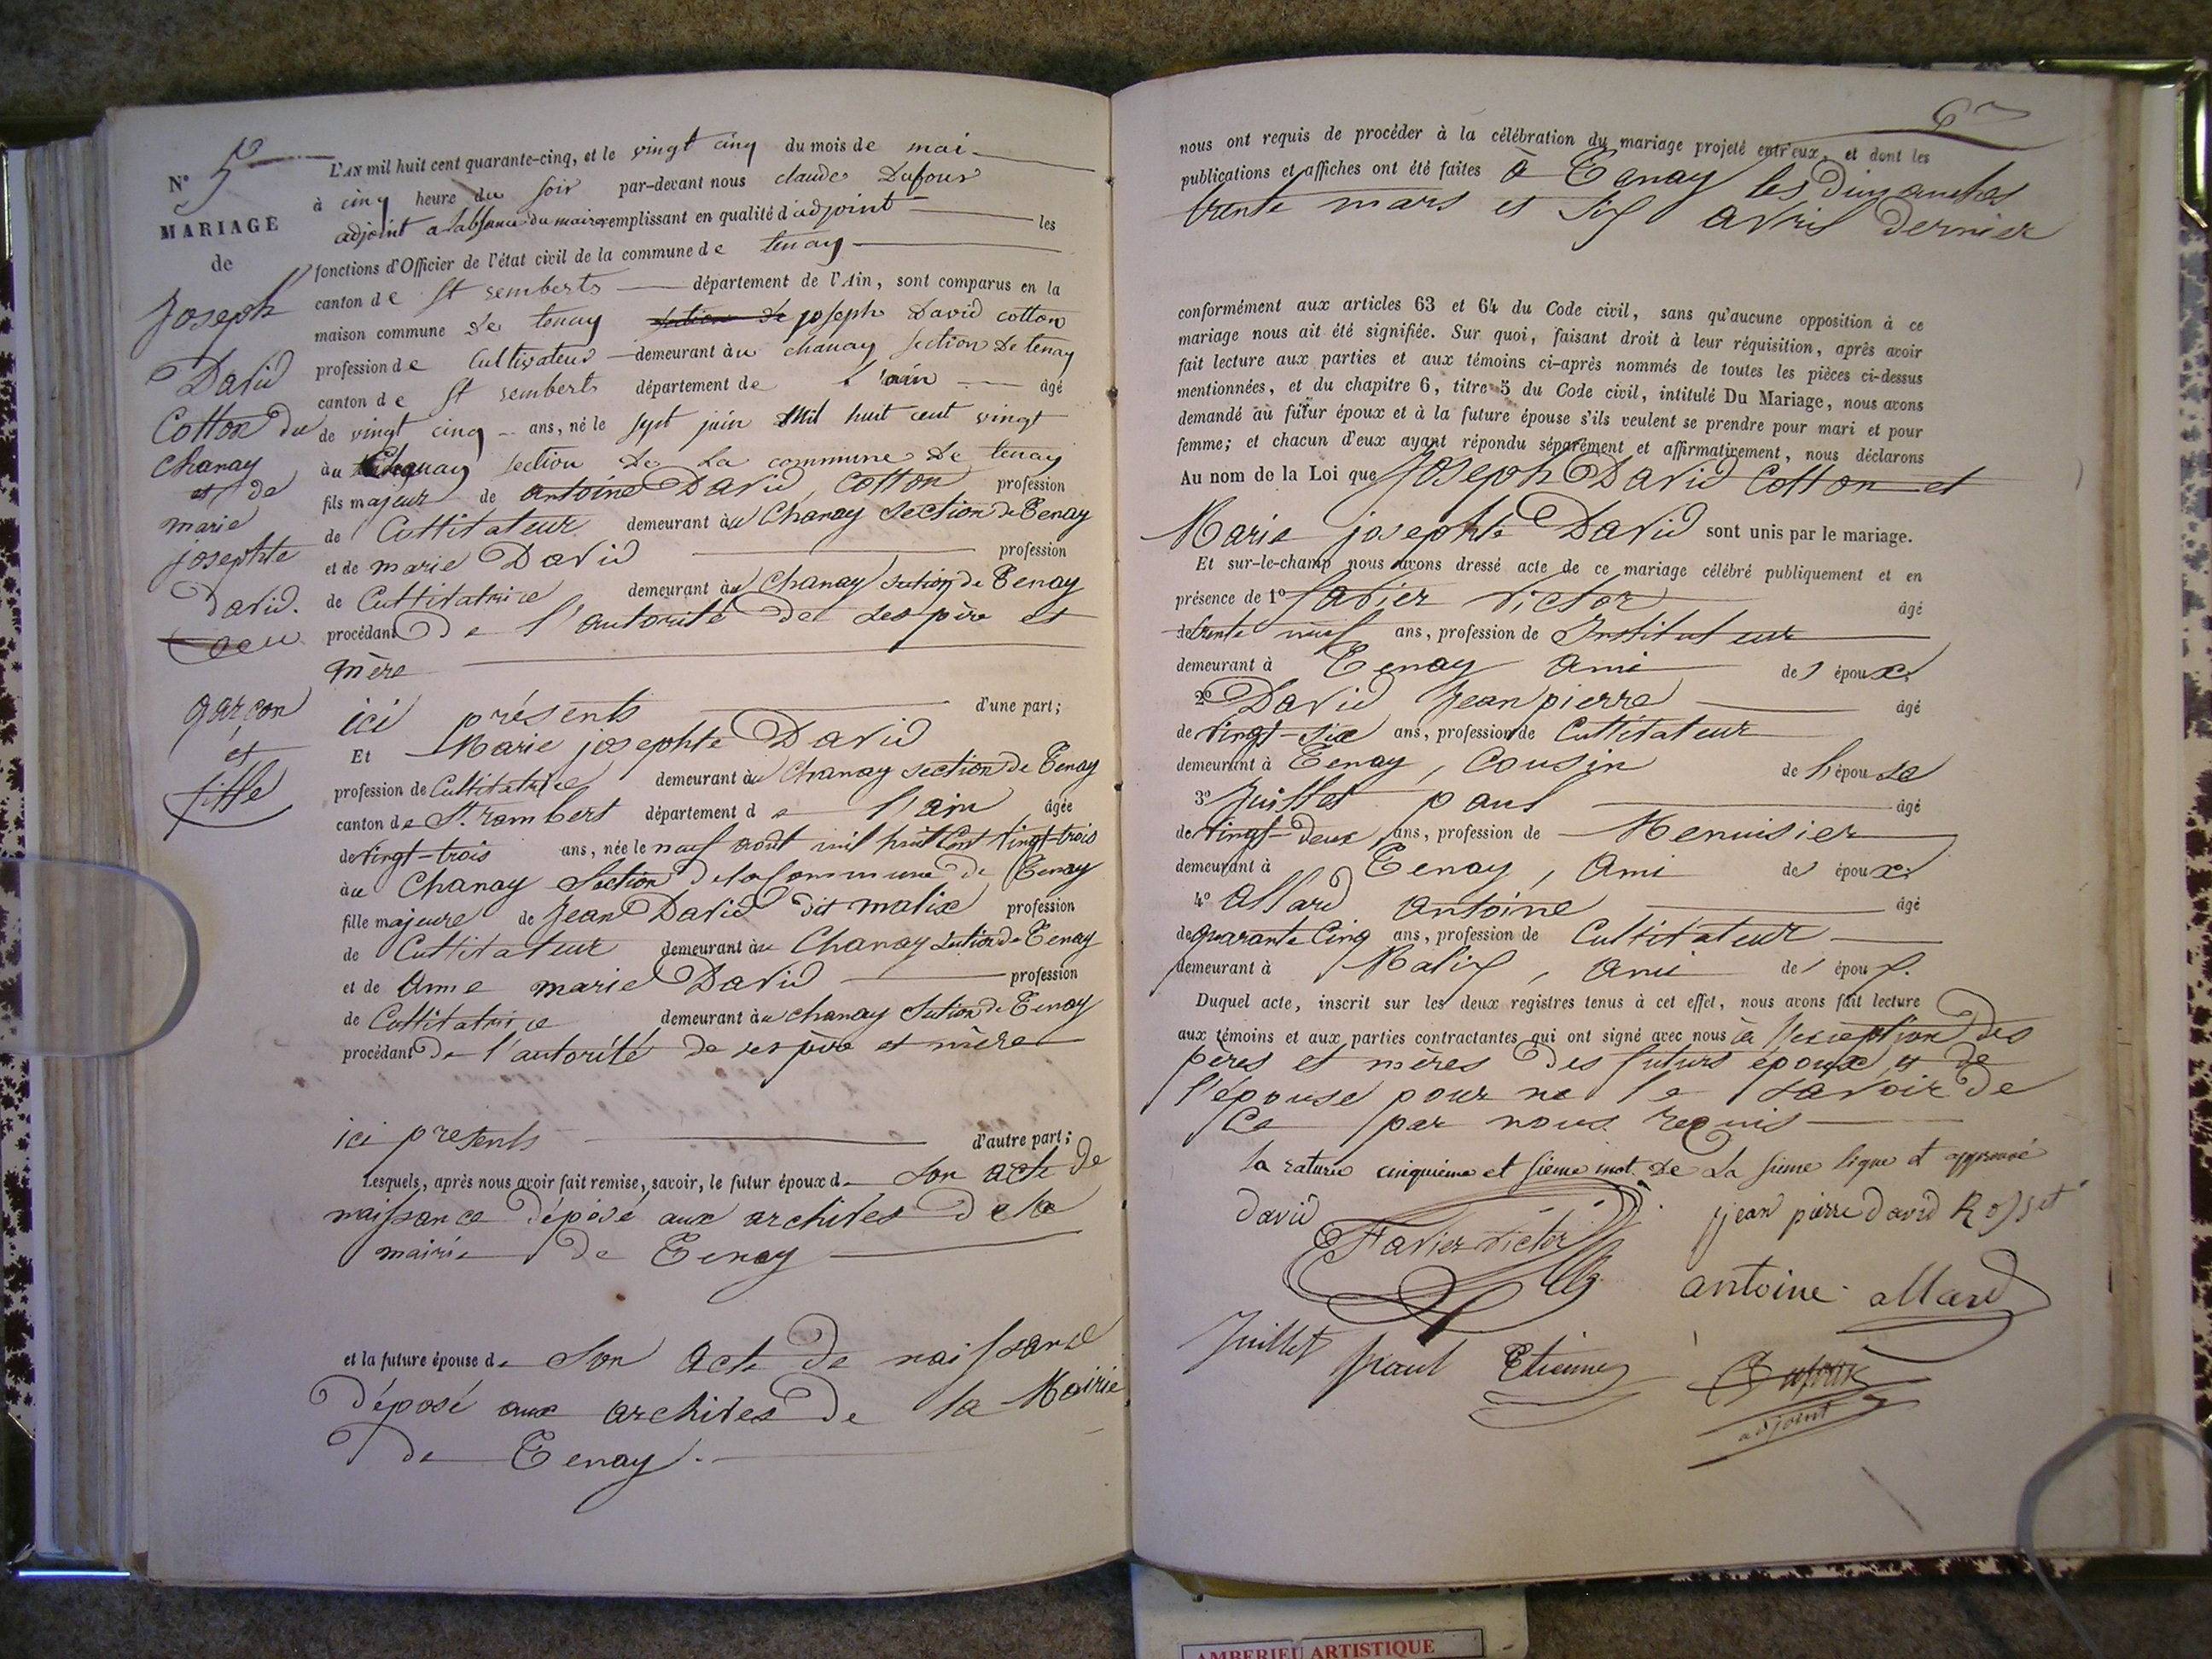 N° 5
MARIAGE
de
Joseph
David
Cotton du
Chanay
et de
marie
josephte
david.
garçon
et
fille
L'AN mil huit cent quarante-cinq, et le vingt cinq du mois de mai
à cinq heure du soir par-devant nous claude Dufour
adjoint a labsence du maire remplissant en qualité d'adjoint les
fonctions d'Officier de l'état civil de la commune de tenay
canton de St remberts département de l'Ain, sont comparus en la
maison commune de tenay section de joseph David cotton
profession de Cultivateur demeurant àu chanay section de tenay
canton de St remberts département de l'ain âgé
de vingt cinq ans, né le sept juin mil huit cent vingt
àu Chanay section de La commune de tenay
fils majeur de antoine David, Cotton profession
de Cultivateur demeurant àu Chanay Section de Tenay
et de marie David profession
de Cultivatrice demeurant àu Chanay Section de Tenay
procédant De l'autorité de ses père et
mère
ici présents d'une part;
Et Marie josephte David
profession de Cultivatrice demeurant àu Chanay Section de Tenay
canton de St. rambert département de l'ain âgée
de vingt-trois ans, née le neuf août mil huit Cent vingt-trois
àu Chanay Section de la Commune de Tenay
fille majeure de Jean David dit malix profession
de Cultivateur demeurant àu Chanay Section de Tenay
et de Anne marie David profession
de Cultivatrice demeurant àu chanay Section de Tenay
procédant De l'autorité de ses père et mère
ici presents d'autre part;
Lesquels, après nous avoir fait remise, savoir, le futur époux de son acte de
naissance déposé aux archives de la
mairie de Tenay
et la future épouse de Son Acte de naissance
Déposé aux archives de la Mairie
de Tenay.
6
nous ont requis de procéder à la célébration du mariage projeté entr'eux, et dont les
publications et affiches ont été faites à Tenay les dimanches
trente mars et six avril dernier
conformément aux articles 63 et 64 du Code civil, sans qu'aucune opposition à ce
mariage nous ait été signifiée. Sur quoi, faisant droit à leur réquisition, après avoir
fait lecture aux parties et aux témoins ci-après nommés de toutes les pièces ci-dessus
mentionnées, et du chapitre 6, titre 5 du Code civil, intitulé Du Mariage, nous avons
demandé au futur époux et à la future épouse s'ils veulent se prendre pour mari et pour
femme; et chacun d'eux ayant répondu séparément et affirmativement, nous déclarons
Au nom de la Loi que Joseph David Cotton et
Marie josephte David sont unis par le mariage.
Et sur-le-champ nous avons dressé acte de ce mariage célébré publiquement et en
présence de 1° favier Victor âgé
de trente neuf ans, profession de Instituteur
demeurant à Tenay ami de l'époux.
2° David Jean pierre âgé
de vingt-six ans, profession de Cultivateur
demeurant à Tenay, Cousin de l'épouse
3° Juillet paul âgé
de vingt-deux ans, profession de Menuisier
demeurant à Tenay, ami de l'époux.
4° Allard antoine âgé
de quarante Cinq ans, profession de Cultivateur
demeurant à Malix, ami de l'époux.
Duquel acte, inscrit sur les deux registres tenus à cet effet, nous avons fait lecture
aux témoins et aux parties contractantes qui ont signé avec nous à l'exception des
pères et mères des futurs époux, et de
l'épouse pour ne le savoir de
Ce par nous requis
la rature cinquième et sieme mot. De La sieme ligne et approuvé
david
Favier Victor
jean pierre david Rosset
antoine allard
Juillet paul Etienne
Dufour
adjoint
AMBERIEU ARTISTIQUE